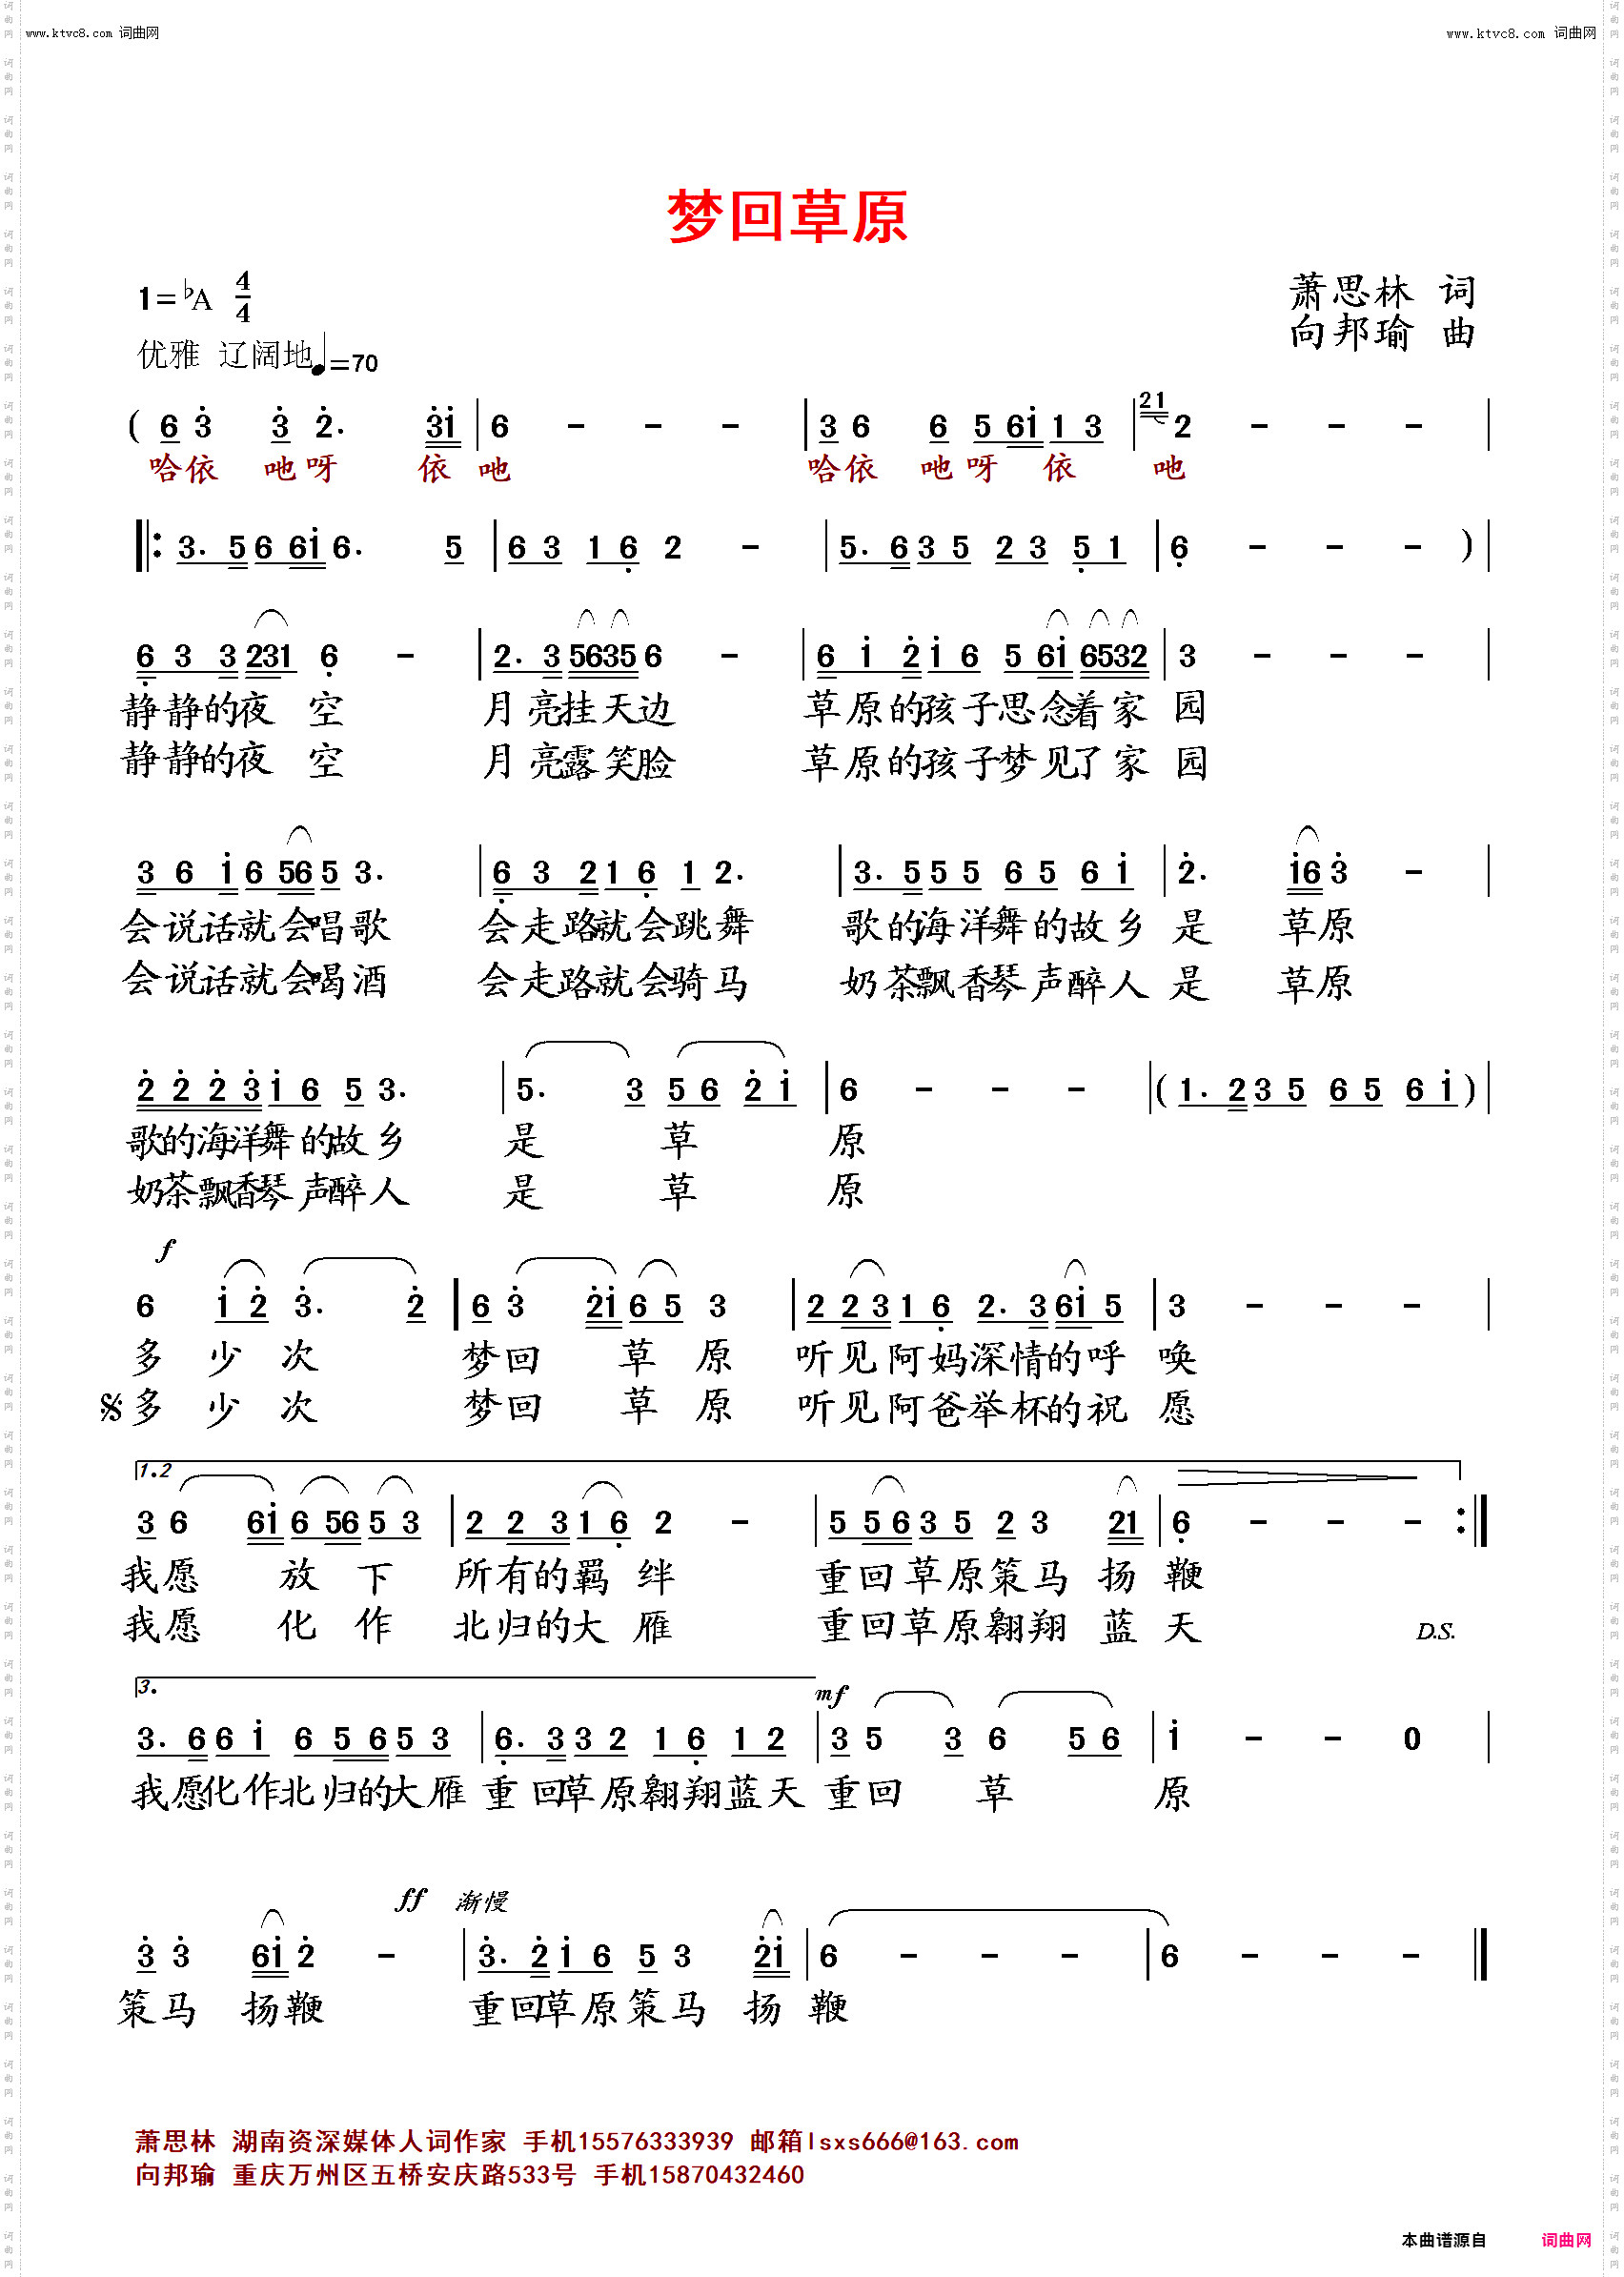 www.ktvc8.com 词曲网
www.ktvc8.com 词曲网
梦回草原
1=♭A 4/4
萧思林 词
向邦瑜 曲
优雅 辽阔地♩=70
( 6 3̇ 3̇ 2̇. 3̇1̇ | 6 - - - | 3 6 6 5 61̇ 1 3 | 21 2 - - - |
哈依 吔呀 依 吔 哈依 吔呀 依 吔
‖: 3. 5 6 61̇ 6. 5 | 6 3 1 6̣ 2 - | 5. 6 3 5 2 3 5̣ 1 | 6̣ - - - ) |
6̣ 3 3 231 6̣ - | 2. 3 5635 6 - | 6 1̇ 2̇ 1̇ 6 5 61̇ 6532 | 3 - - - |
静静的夜 空 月亮挂天边 草原的孩子思念着家 园
静静的夜 空 月亮露笑脸 草原的孩子梦见了家 园
3 6 1̇ 6 56 5 3. | 6̣ 3 2 1 6̣ 1 2. | 3. 5 5 5 6 5 6 1̇ | 2̇. 1̇6 3̇ - |
会说话就会唱歌 会走路就会跳舞 歌的海洋舞的故乡 是 草原
会说话就会喝酒 会走路就会骑马 奶茶飘香琴声醉人 是 草原
2̇ 2̇ 2̇ 3̇ 1̇ 6 5 3. | 5. 3 5 6 2̇ 1̇ | 6 - - - | ( 1. 2 3 5 6 5 6 1̇ ) |
歌的海洋舞的故乡 是 草 原
奶茶飘香琴声醉人 是 草 原
f
6 1̇ 2̇ 3̇. 2̇ | 6 3̇ 2̇1̇ 6 5 3 | 2 2 3 1 6̣ 2. 3 61̇ 5 | 3 - - - |
多 少 次 梦回 草 原 听见阿妈深情的呼 唤
𝄋 多 少 次 梦回 草 原 听见阿爸举杯的祝 愿
1.2
3 6 61̇ 6 56 5 3 | 2 2 3 1 6̣ 2 - | 5 5 6 3 5 2 3 21 | 6̣ - - - :‖
我愿 放 下 所有的羁 绊 重回草原策马 扬 鞭
我愿 化 作 北归的大 雁 重回草原翱翔 蓝 天 D.S.
3.
mf
3. 6 6 1̇ 6 5 6 5 3 | 6̣. 3 3 2 1 6̣ 1 2 | 3 5 3 6 5 6 | 1̇ - - 0 |
我愿化作北归的大雁 重回草原翱翔蓝天 重回 草 原
ff 渐慢
3̇ 3̇ 61̇ 2̇ - | 3̇. 2̇ 1̇ 6 5 3 2̇1̇ | 6 - - - | 6 - - - ‖
策马 扬鞭 重回草原策马 扬 鞭
萧思林 湖南资深媒体人词作家 手机15576333939 邮箱lsxs666@163.com
向邦瑜 重庆万州区五桥安庆路533号 手机15870432460
本曲谱源自 词曲网